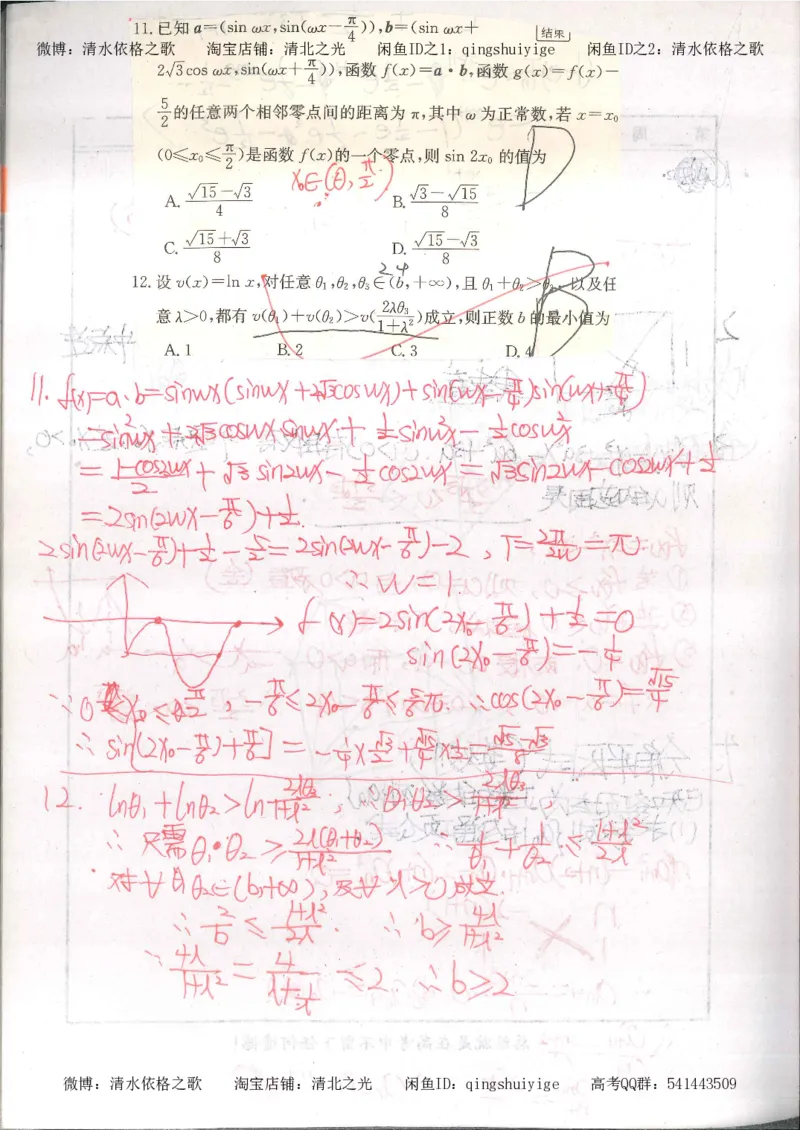 11.已知a=(sin ωx,sin(ωx-π/4)),b=(sin ωx+
结果
微博：清水依格之歌 淘宝店铺：清北之光 闲鱼ID之1：qingshuiyige 闲鱼ID之2：清水依格之歌
2√3cos ωx,sin(ωx+π/4)),函数 f(x)=a·b,函数 g(x)=f(x)-
5/2的任意两个相邻零点间的距离为 π,其中 ω 为正常数,若 x=x₀
(0≤x₀≤π/2)是函数 f(x)的一个零点,则 sin 2x₀ 的值为
D
x₀∈(0,π/2)
A. (√15-√3)/4 B. (√3-√15)/8
C. (√15+√3)/8 D. (√15-√3)/8
2 4
12.设 v(x)=ln x,对任意 θ₁,θ₂,θ₃∈(b,+∞),且 θ₁+θ₂>θ₃,以及任
意 λ>0,都有 v(θ₁)+v(θ₂)>v(2λθ₃/(1+λ²))成立,则正数 b 的最小值为
B
A.1 B.2 C.3 D.4
11. f(x)=a·b=sinwx(sinwx+2√3coswx)+sin(wx-π/4)sin(wx+π/4)
=sin²wx+2√3coswxsinwx+1/2sin²wx-1/2cos²wx
=(1-cos2wx)/2+√3sin2wx-1/2cos2wx=√3sin2wx-cos2wx+1/2
=2sin(2wx-π/6)+1/2.
2sin(2wx-π/6)+1/2-5/2=2sin(2wx-π/6)-2, T=2π/2w=π.
∴w=1.
f(x)=2sin(2x₀-π/6)+1/2=0
sin(2x₀-π/6)=-1/4
∵0≤x₀≤π/2, -π/6≤2x₀-π/6≤5/6π. ∴cos(2x₀-π/6)=√15/4
∴sin[(2x₀-π/6)+π/6]=-1/4×√3/2+√15/4×1/2=(√15-√3)/8
12. lnθ₁+lnθ₂>ln2λθ₃/(1+λ²), ∴θ₁θ₂>2λθ₃/(1+λ²),
∴只需θ₁·θ₂≥2λ(θ₁+θ₂)/(1+λ²) ∴1/θ₁+1/θ₂≤(1+λ²)/2λ
对∀θ₁θ₂∈(b,+∞),及∀λ>0成立.
∴2/b≤(1+λ²)/2λ. ∴b≥4λ/(1+λ²)
∵4λ/(1+λ²)=4/(λ+1/λ)≤2 ∴b≥2
微博：清水依格之歌 淘宝店铺：清北之光 闲鱼ID：qingshuiyige 高考QQ群：541443509